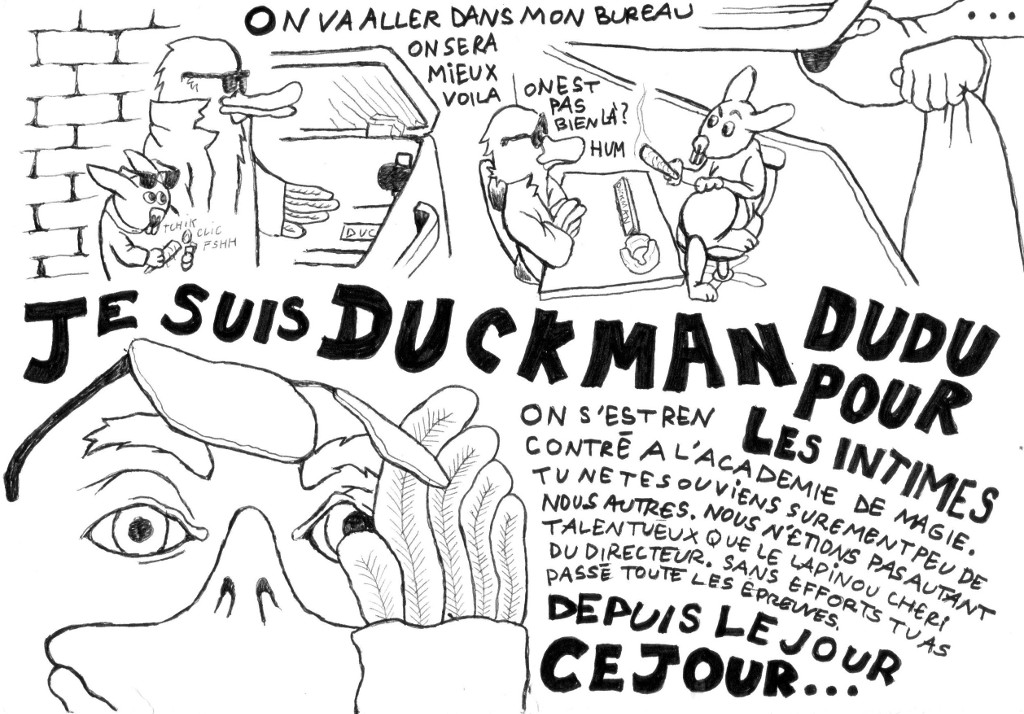 ON VA ALLER DANS MON BUREAU
ON SERA
MIEUX
VOILA
ON EST
PAS
BIEN LÀ?
HUM
...
TCHIK
CLIC
PSHH
DUC
JE SUIS DUCKMAN
DUDU
POUR
LES INTIMES
ON S'EST REN
CONTRÉ A L'ACADEMIE DE MAGIE.
TU NE TE SOUVIENS SUREMENT PEU DE
NOUS AUTRES. NOUS N'ÉTIONS PAS AUTANT
TALENTUEUX QUE LE LAPINOU CHERI
DU DIRECTEUR. SANS EFFORTS TU AS
PASSÉ TOUTE LES ÉPREUVES.
DEPUIS LE JOUR
CE JOUR...